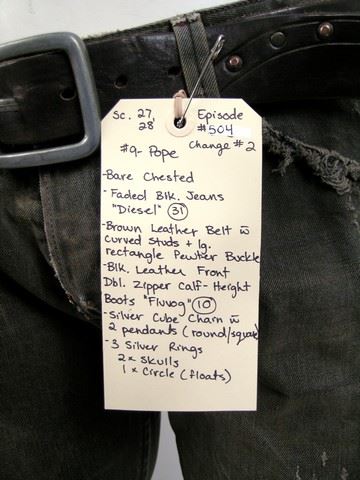 sc. 27, Episode
28 #504
#9- Pope Change #2
-Bare Chested
-Faded Blk. Jeans
"Diesel" 31
-Brown Leather Belt w̄
curved studs + lg.
rectangle Pewter Buckle
-Blk. Leather Front
Dbl. Zipper Calf-Height
Boots "Fluvog" 10
-Silver Cube Chain w̄
2 pendants (round/square)
-3 Silver Rings
2x Skulls
1x Circle (floats)